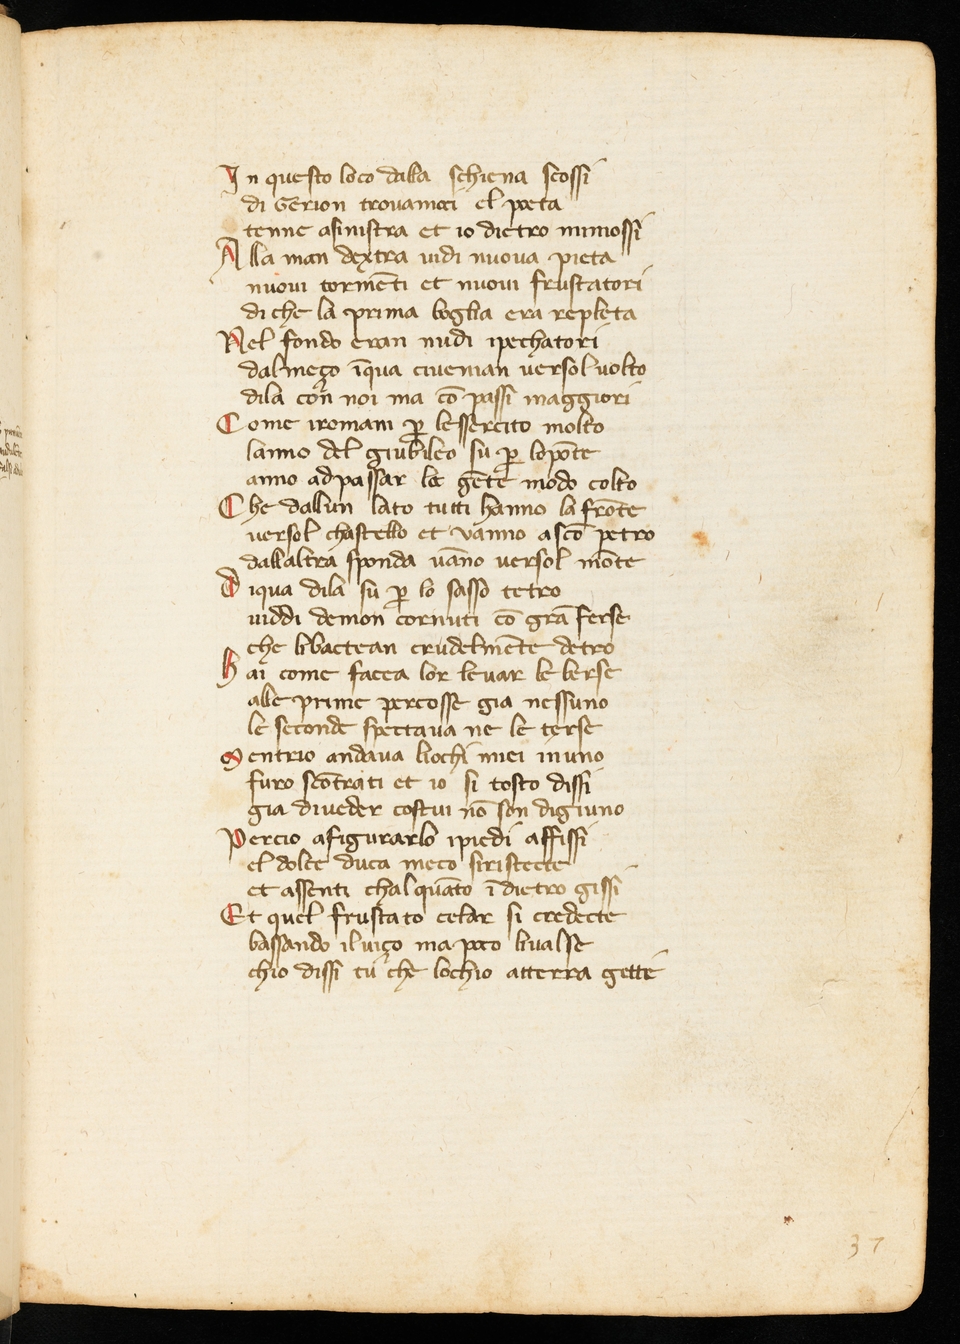 In questo loco dalla schiena scossi
di Gerion trovamoci el poeta
tenne asinistra et io dietro mimossi
Alla man dextra uidi nuoua pieta
nuoui tormēti et nuoui frustatori
di che la prima boglia era repleta
Nel fondo eran nudi ipechatori
dal meço īqua ciuenian uersol uolto
dila con noi ma cō passi maggiori
Come iromani ꝑ lessercito molto
lanno del giubileo su ꝑ lopōte
anno ad passar la gēte modo colto
Che dallun lato tutti hanno la frōte
uersol chastello et vanno a sco petro
dallaltra sponda uāno uersol mōte
Diqua dila su ꝑ lo sasso tetro
uiddi demon cornuti cō grā ferse
che libactean crudelmēte detro
Hai come facea lor leuar le berse
alle prime percosse gia nessuno
le seconde spectaua ne le terse
Mentrio andaua liochi miei inuno
furo scōtrati et io si tosto dissi
gia di ueder costui nō son digiuno
Percio afigurarlo ipiedi affissi
el dolce duca meco siristecte
et assenti chalquāto ī dietro gissi
Et quel frustato celar si credecte
bassando il uiço ma poco liualse
chio dissi tu che lochio atterra gette
37